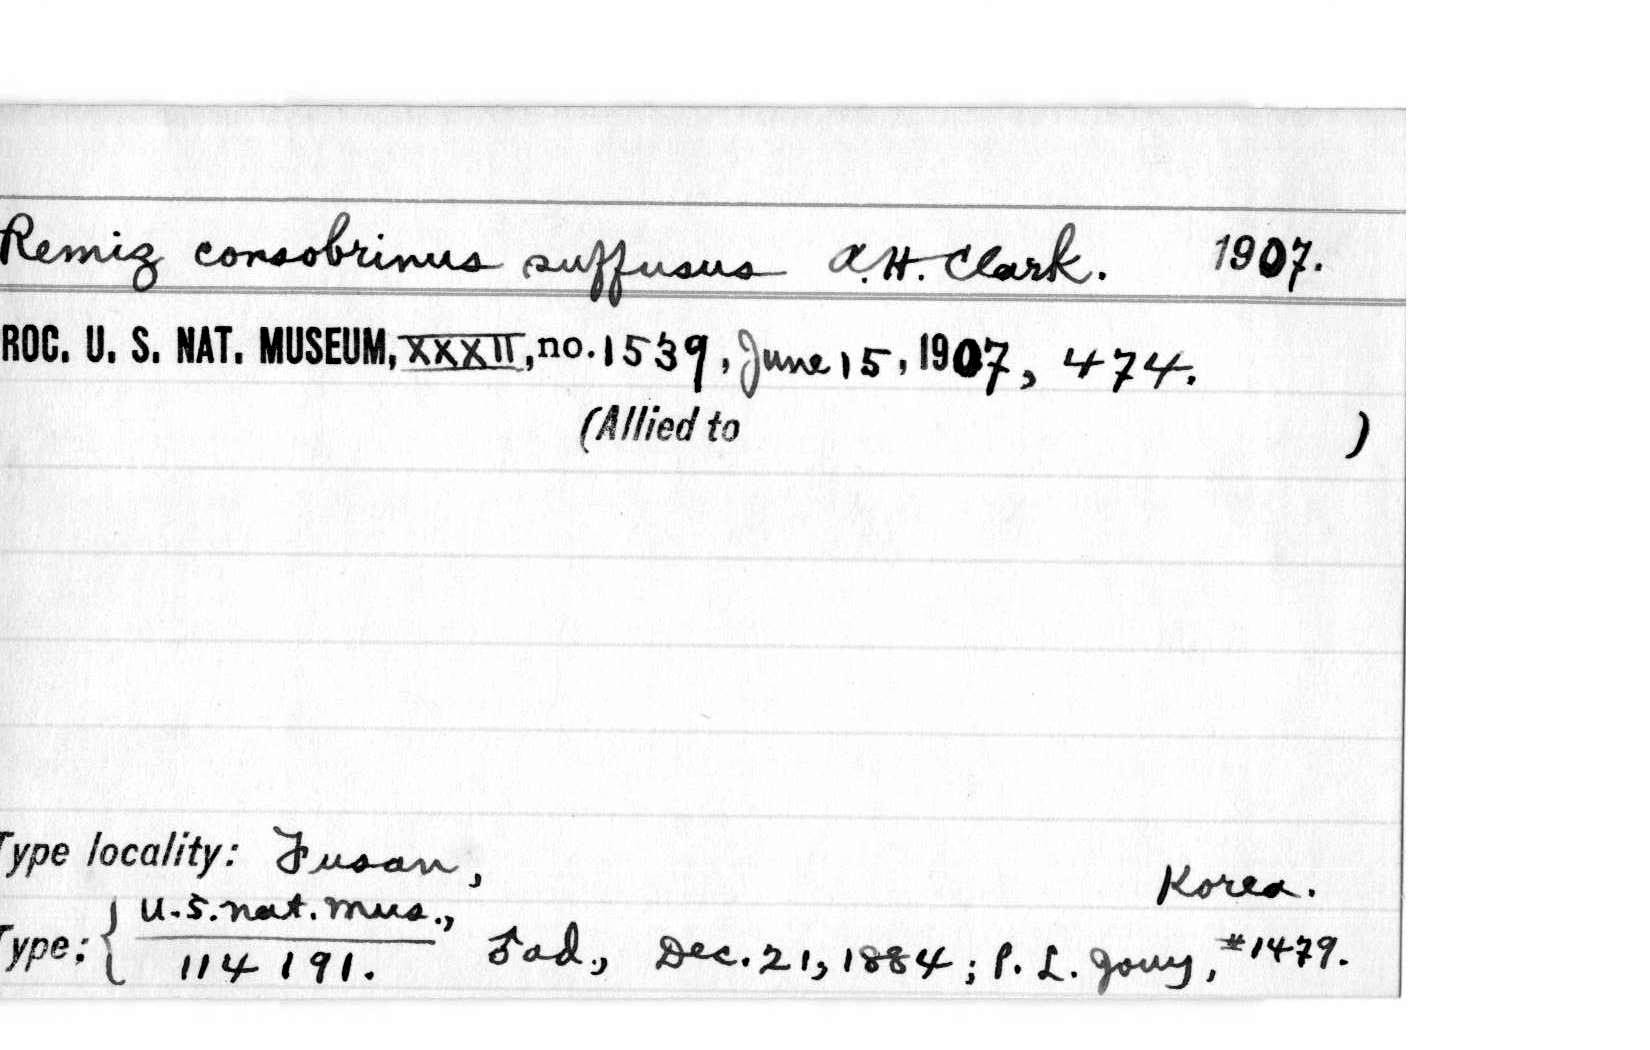 Remiz consobrinus suffusus A.H. Clark. 1907.
ROC. U. S. NAT. MUSEUM, XXXII, no. 1539, June 15, 1907, 474.
(Allied to )
Type locality: Fusan, Korea.
Type: { U.S. nat. mus., 114 191. Fad., Dec. 21, 1884; P. L. Jouy, #1479.